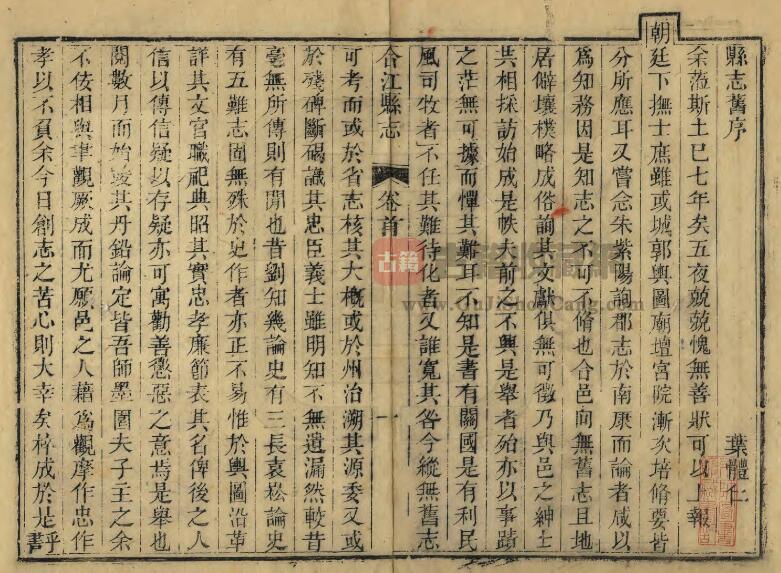 縣志舊序
葉體仁
余蒞斯土已七年矣五夜兢兢愧無善狀可以上報
朝廷下撫士庶雖或城郭輿圖廟壇宮院漸次培脩要皆
分所應耳又嘗念朱紫陽詢郡志於南康而論者咸以
爲知務因是知志之不可不脩也合邑向無舊志且地
居僻壤樸略成俗詢其文獻俱無可徵乃與邑之紳士
共相採訪始成是帙夫前之不興是舉者殆亦以事蹟
之茫無可據而憚其難耳不知是書有關國是有利民
風司牧者不任其難待化者又誰寬其咎今縱無舊志
合江縣志 卷首 一
可考而或於省志核其大概或於州治溯其源委又或
於殘碑斷碣識其忠臣義士雖明知不無遺漏然較昔
毫無所傳則有間也昔劉知幾論史有三長袁崧論史
有五難志固無殊於史作者亦正不易惟於輿圖沿革
詳其文官職祀典昭其實忠孝廉節表其名俾後之人
信以傳信疑以存疑亦可寓勸善懲惡之意焉是舉也
閱數月而始竣其丹鉛論定皆吾師墨圃夫子主之余
不佞相與聿觀厥成而尤願邑之人藉爲觀摩作忠作
孝以不負余今日創志之苦心則大幸矣梓成於是乎書
古籍
www.GuJiShouCang.com